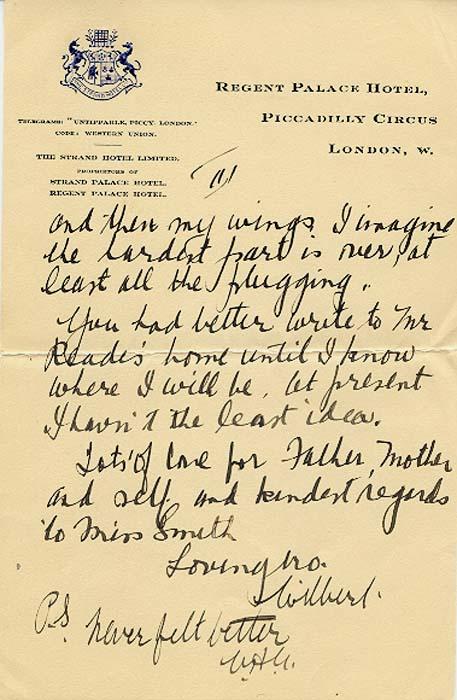 REGENT PALACE HOTEL,
PICCADILLY CIRCUS
LONDON, W.
TELEGRAMS: "UNTIPPABLE, PICCY, LONDON."
CODE: WESTERN UNION.
THE STRAND HOTEL LIMITED,
PROPRIETORS OF
STRAND PALACE HOTEL.
REGENT PALACE HOTEL.
and then my wings, I imagine
the hardest part is over, at
least all the plugging.
You had better write to Mr
Reade's home until I know
where I will be, at present
I havn't the least idea.
Lots of love for Father, Mother
and self and kindest regards
to Miss Smith
Loving bro.
Wilbert.
P.S. Never felt better